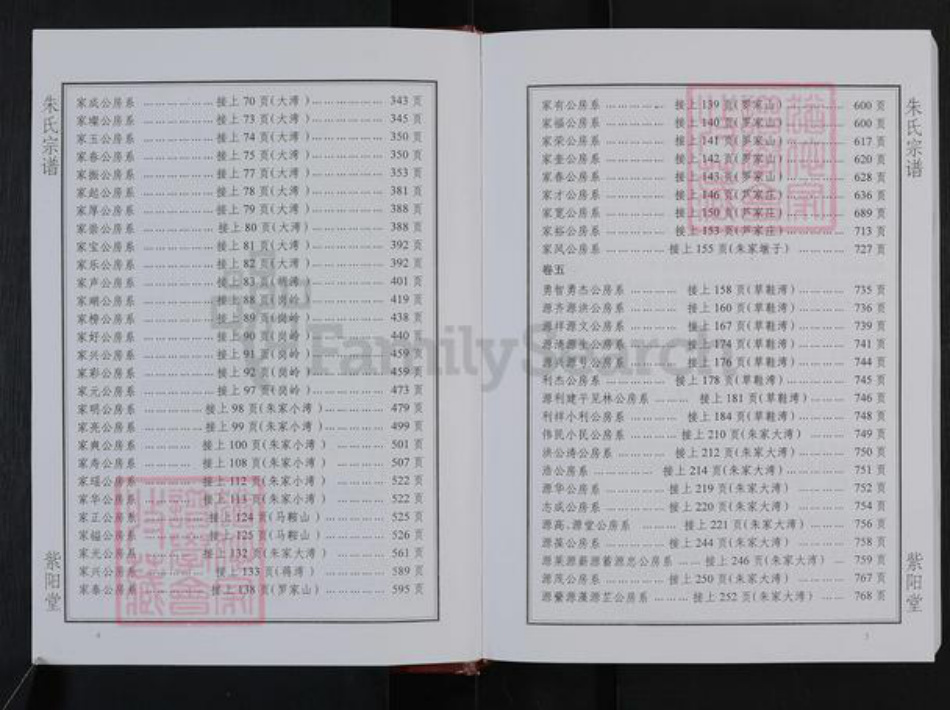 朱氏宗谱
家成公房系 ……………… 接上 70 页(大湾 )……………… 343 页
家墚公房系 ……………… 接上 73 页(大湾 )……………… 345 页
家玉公房系 ……………… 接上 74 页(大湾 )……………… 350 页
家春公房系 ……………… 接上 75 页(大湾 )……………… 350 页
家振公房系 ……………… 接上 77 页(大湾 )……………… 353 页
家起公房系 ……………… 接上 78 页(大湾 )……………… 381 页
家厚公房系 ……………… 接上 79 页(大湾 )……………… 388 页
家崇公房系 ……………… 接上 80 页(大湾 )……………… 388 页
家宝公房系 ……………… 接上 81 页(大湾 )……………… 392 页
家乐公房系 ……………… 接上 82 页(大湾 )……………… 392 页
家声公房系 ……………… 接上 83 页 ……………… 401 页
家公房系 ……………… 接上 88 页(岗岭 )……………… 419 页
家榜公房系 ……………… 接上 89 页(岗岭 )……………… 438 页
家好公房系 ……………… 接上 90 页(岗岭 )……………… 440 页
家兴公房系 ……………… 接上 91 页(岗岭 )……………… 459 页
家彩公房系 ……………… 接上 92 页(岗岭 )……………… 459 页
家元公房系 ……………… 接上 97 页(岗岭 )……………… 473 页
家明公房系 …………… 接上 98 页(朱家小湾 )…………… 479 页
家亮公房系 …………… 接上 99 页(朱家小湾 )…………… 499 页
家爽公房系 ………… 接上 100 页(朱家小湾 ) ………… 501 页
家寿公房系 ………… 接上 108 页(朱家小湾 ) ………… 507 页
家瑶公房系 ………… 接上 112 页(朱家小湾 ) ………… 522 页
家华公房系 ………… 接上 113 页(朱家小湾 ) ………… 522 页
家正公房系 …………… 接上 124 页(马鞍山 ) ………… 525 页
家福公房系 …………… 接上 125 页(马鞍山 ) ………… 526 页
家光公房系 ………… 接上 132 页(朱家大湾 ) ………… 561 页
家兴公房系 …………… 接上 133 页(蒋湾 ) …………… 589 页
家泰公房系 …………… 接上 138 页(罗家山 ) ………… 595 页
紫阳堂
4
家有公房系 …………… 接上 139 页(罗家山) …………… 600 页
家福公房系 …………… 接上 140 页(罗家山) …………… 600 页
家荣公房系 …………… 接上 141 页(罗家山) …………… 617 页
家奎公房系 …………… 接上 142 页(罗家山) …………… 620 页
家春公房系 …………… 接上 143 页(罗家山) …………… 628 页
家才公房系 …………… 接上 146 页(芦家庄) …………… 636 页
家宽公房系 …………… 接上 150 页(芦家庄) …………… 689 页
家裕公房系 …………… 接上 153 页(芦家庄) …………… 713 页
家凤公房系 …………… 接上 155 页(朱家墩子) ………… 727 页
卷五
勇智勇杰公房系 ………… 接上 158 页(草鞋湾)………… 735 页
源齐源洪公房系 ………… 接上 160 页(草鞋湾)………… 736 页
源祥源文公房系 ………… 接上 167 页(草鞋湾)………… 739 页
源清源生公房系 ………… 接上 174 页(草鞋湾)………… 741 页
源兴公房系 ………… 接上 176 页(草鞋湾)………… 744 页
利杰公房系 …………… 接上 178 页(草鞋湾)………… 745 页
源利建平见林公房系 ……… 接上 181 页(草鞋湾)……… 746 页
利祥小利公房系 ………… 接上 184 页(草鞋湾)………… 748 页
伟民小民公房系 ………… 接上 210 页(朱家大湾) ……… 749 页
洪公涛公房系 ………… 接上 212 页(朱家大湾)………… 750 页
浩公房系 …………… 接上 214 页(朱家大湾)………… 751 页
源华公房系 ………… 接上 219 页(朱家大湾) ………… 752 页
志成公房系 ………… 接上 220 页(朱家大湾) ………… 754 页
源高、源堂公房系 ……… 接上 221 页(朱家大湾) ……… 756 页
源葆公房系 ………… 接上 244 页(朱家大湾) ………… 758 页
源公房系 …… 接上 246 页(朱家大湾) … 759 页
源茂公房系 ………… 接上 250 页(朱家大湾) ………… 767 页
源公房系 ……… 接上 252 页(朱家大湾) …… 768 页
朱氏宗谱
紫阳堂
5
FamilySearch